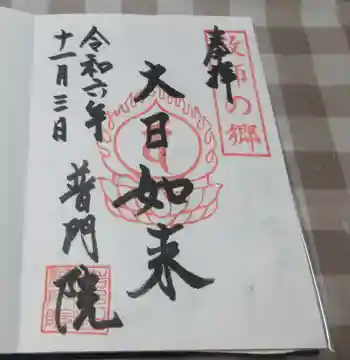 奉拝
教師の郷
大日如来
普門院
令和六年
十一月三日